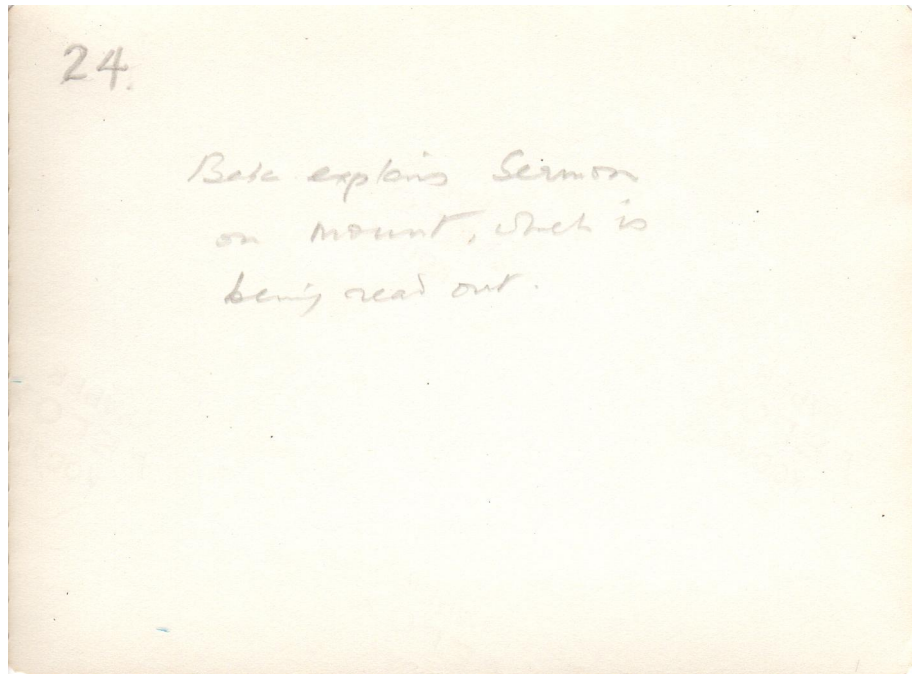 24.
Baba explains Sermon
on Mount, which is
being read out.